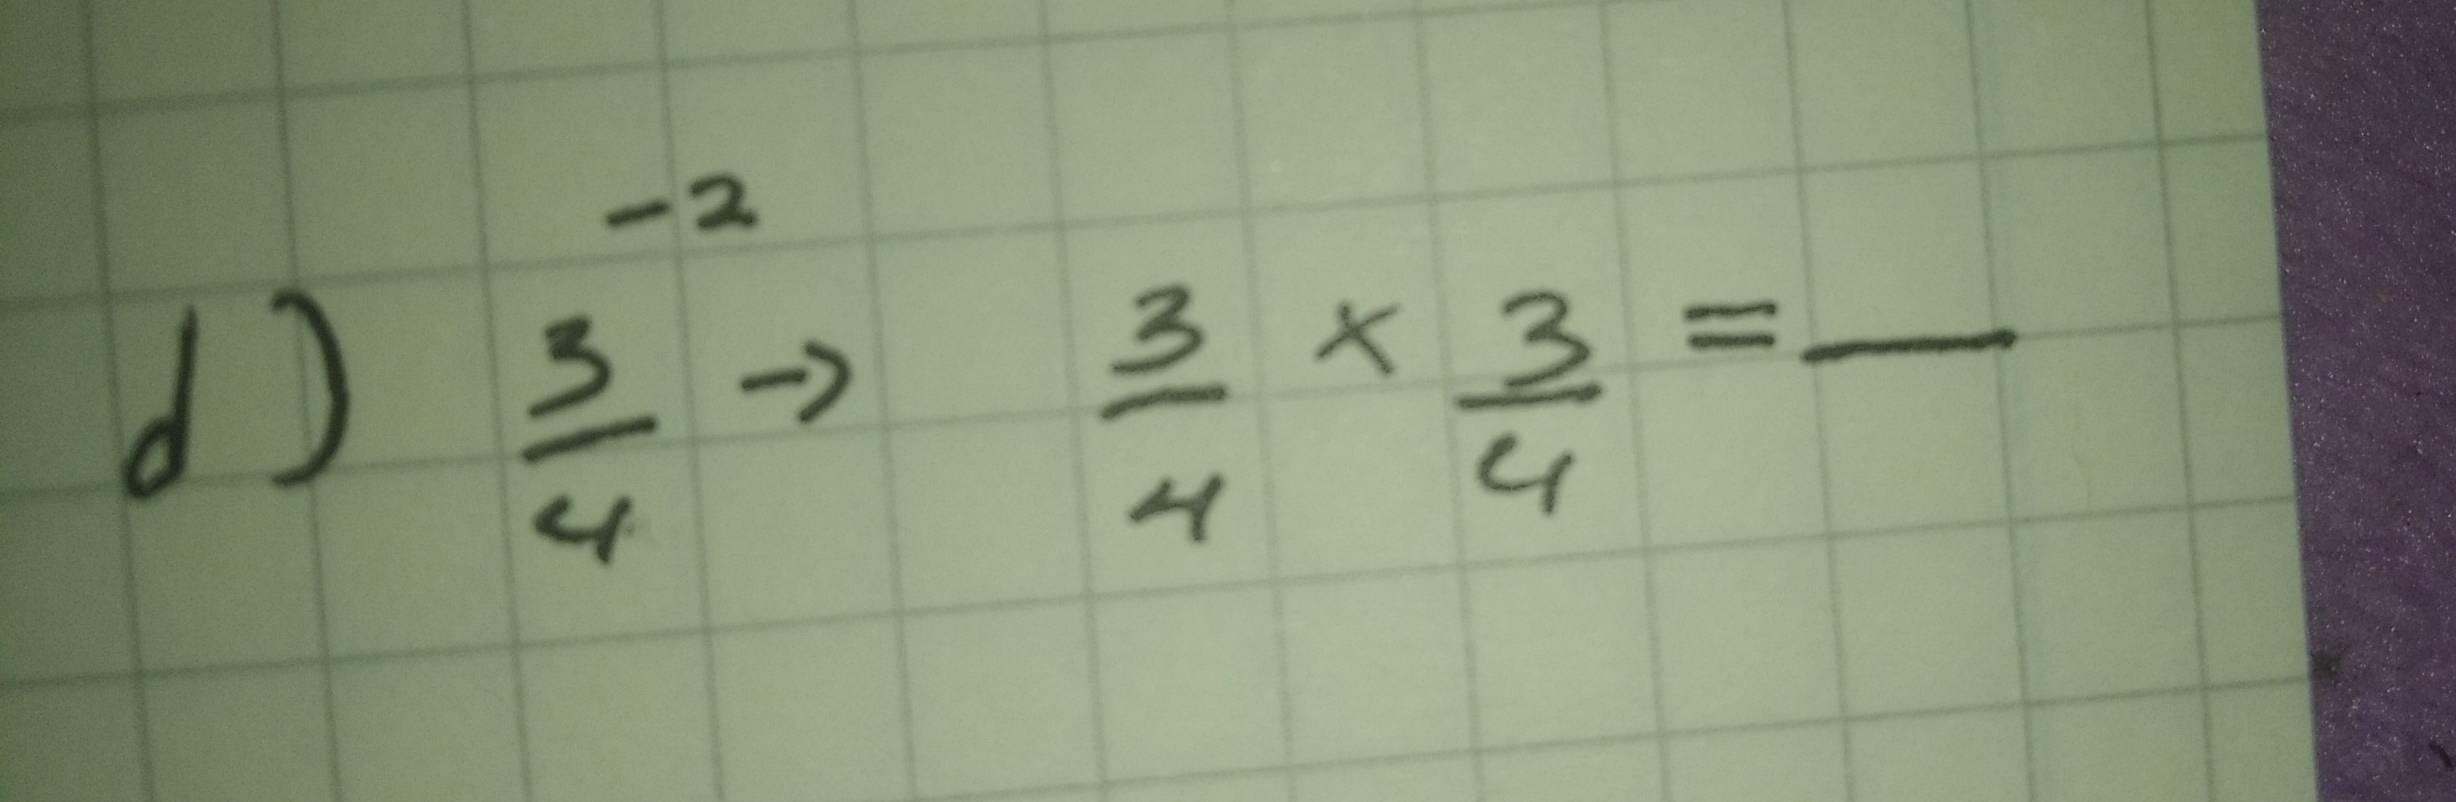 d) 3/4 -2 → 3/4 × 3/4 = __